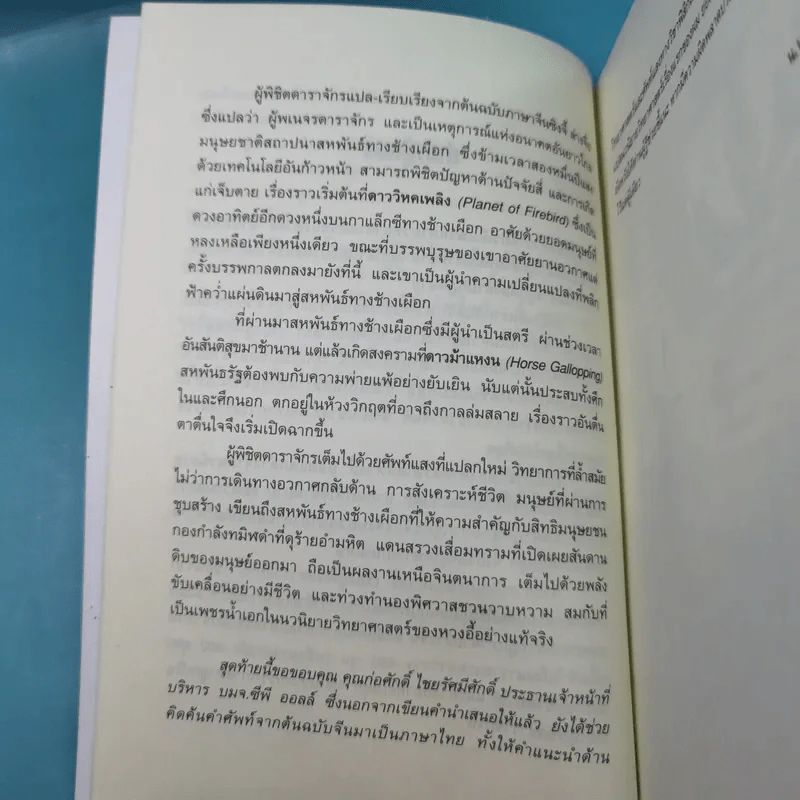 ผู้พิชิตดาราจักรแปล-เรียบเรียงจากต้นฉบับภาษาจีนซิงจี้
ซึ่งแปลว่า ผู้พเนจรดาราจักร และเป็นเหตุการณ์แห่งอนาคตอันยาวไกล
มนุษยชาติสถาปนาสหพันธ์ทางช้างเผือก ซึ่งข้ามเวลาสองหมื่นปีแสง
ด้วยเทคโนโลยีอันก้าวหน้า สามารถพิชิตปัญหาด้านปัจจัยสี่ และการเกิด
แก่เจ็บตาย เรื่องราวเริ่มต้นที่ดาววิหคเพลิง (Planet of Firebird) ซึ่งเป็น
ดวงอาทิตย์อีกดวงหนึ่งบนกาแล็กซีทางช้างเผือก อาศัยด้วยยอดมนุษย์ที่
หลงเหลือเพียงหนึ่งเดียว ขณะที่บรรพบุรุษของเขาอาศัยยานอวกาศแต่
ครั้งบรรพกาลตกลงมายังที่นี้ และเขาเป็นผู้นำความเปลี่ยนแปลงที่พลิก
ฟ้าคว่ำแผ่นดินมาสู่สหพันธ์ทางช้างเผือก
ที่ผ่านมาสหพันธ์ทางช้างเผือกซึ่งมีผู้นำเป็นสตรี ผ่านช่วงเวลา
อันสันติสุขมาช้านาน แต่แล้วเกิดสงครามที่ดาวม้าแหงน (Horse Gallopping)
สหพันธรัฐต้องพบกับความพ่ายแพ้อย่างยับเยิน นับแต่นั้นประสบทั้งศึก
ในและศึกนอก ตกอยู่ในห้วงวิกฤตที่อาจถึงกาลล่มสลาย เรื่องราวอันตื่น
ตาตื่นใจจึงเริ่มเปิดฉากขึ้น
ผู้พิชิตดาราจักรเต็มไปด้วยศัพท์แสงที่แปลกใหม่ วิทยาการที่ล้ำสมัย
ไม่ว่าการเดินทางอวกาศกลับด้าน การสังเคราะห์ชีวิต มนุษย์ที่ผ่านการ
ชุบสร้าง เขียนถึงสหพันธ์ทางช้างเผือกที่ให้ความสำคัญกับสิทธิมนุษยชน
กองกำลังทมิฬดำที่ดุร้ายอำมหิต แดนสรวงเสื่อมทรามที่เปิดเผยสันดาน
ดิบของมนุษย์ออกมา ถือเป็นผลงานเหนือจินตนาการ เต็มไปด้วยพลัง
ขับเคลื่อนอย่างมีชีวิต และท่วงทำนองพิศวาสชวนวาบหวาม สมกับที่
เป็นเพชรน้ำเอกในนวนิยายวิทยาศาสตร์ของหวงอี้อย่างแท้จริง
สุดท้ายนี้ขอขอบคุณ คุณก่อศักดิ์ ไชยรัศมีศักดิ์ ประธานเจ้าหน้าที่
บริหาร บมจ.ซีพี ออลล์ ซึ่งนอกจากเขียนคำนำเสนอให้แล้ว ยังได้ช่วย
คิดค้นคำศัพท์จากต้นฉบับจีนมาเป็นภาษาไทย ทั้งให้คำแนะนำด้าน